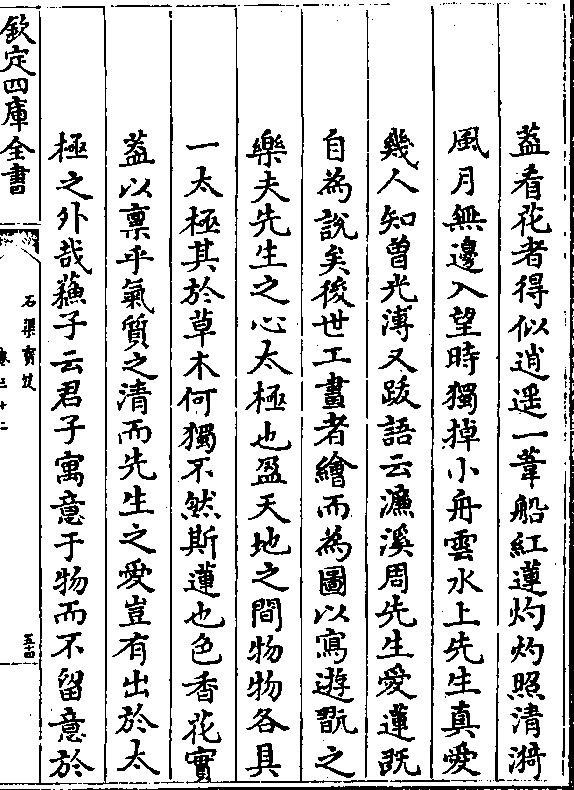 葢看花者得似逍遥一葦船紅蓮灼灼照清漪
風月無邊入望時獨掉小舟雲水上先生真愛
幾人知曽光溥又䟦語云濂溪周先生愛蓮既
自為說矣後世工畫者繪而為圖以寫遊翫之
樂夫先生之心太極也盈天地之間物物各具
一太極其於草木何獨不然斯蓮也色香花實
葢以禀乎氣質之清而先生之愛豈有出於太
極之外哉蘓子云君子寓意于物而不留意於
欽定四庫全書
石渠寳笈
卷三十二
五十四